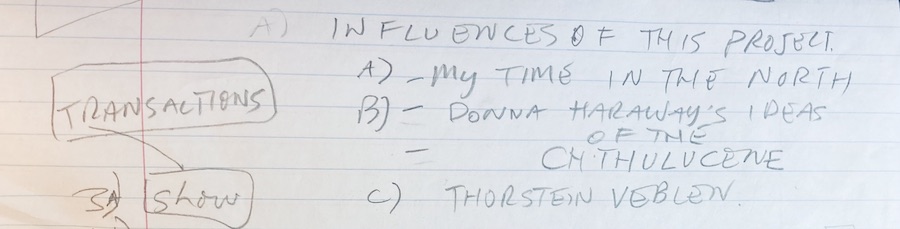 A) INFLUENCES OF THIS PROJECT.
A) - MY TIME IN THE NORTH
TRANSACTIONS
B) - DONNA HARAWAY'S IDEAS
OF THE
= CHTHULUCENE
3A) Show
C) THORSTEIN VEBLEN.